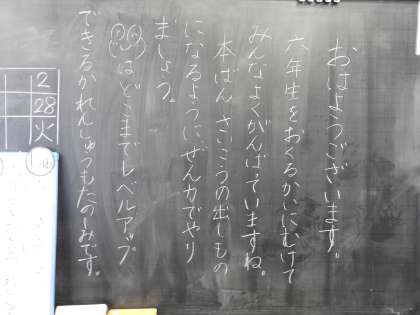 おはようございます。
六年生をおくるかいにむけて
みんなよくがんばっていますね。
本ばん さいこうの出しもの
になるように、ぜん力でやり
ましょう。
はどこまでレベルアップ
できるかれんしゅうもたのしみです。
2
28
火